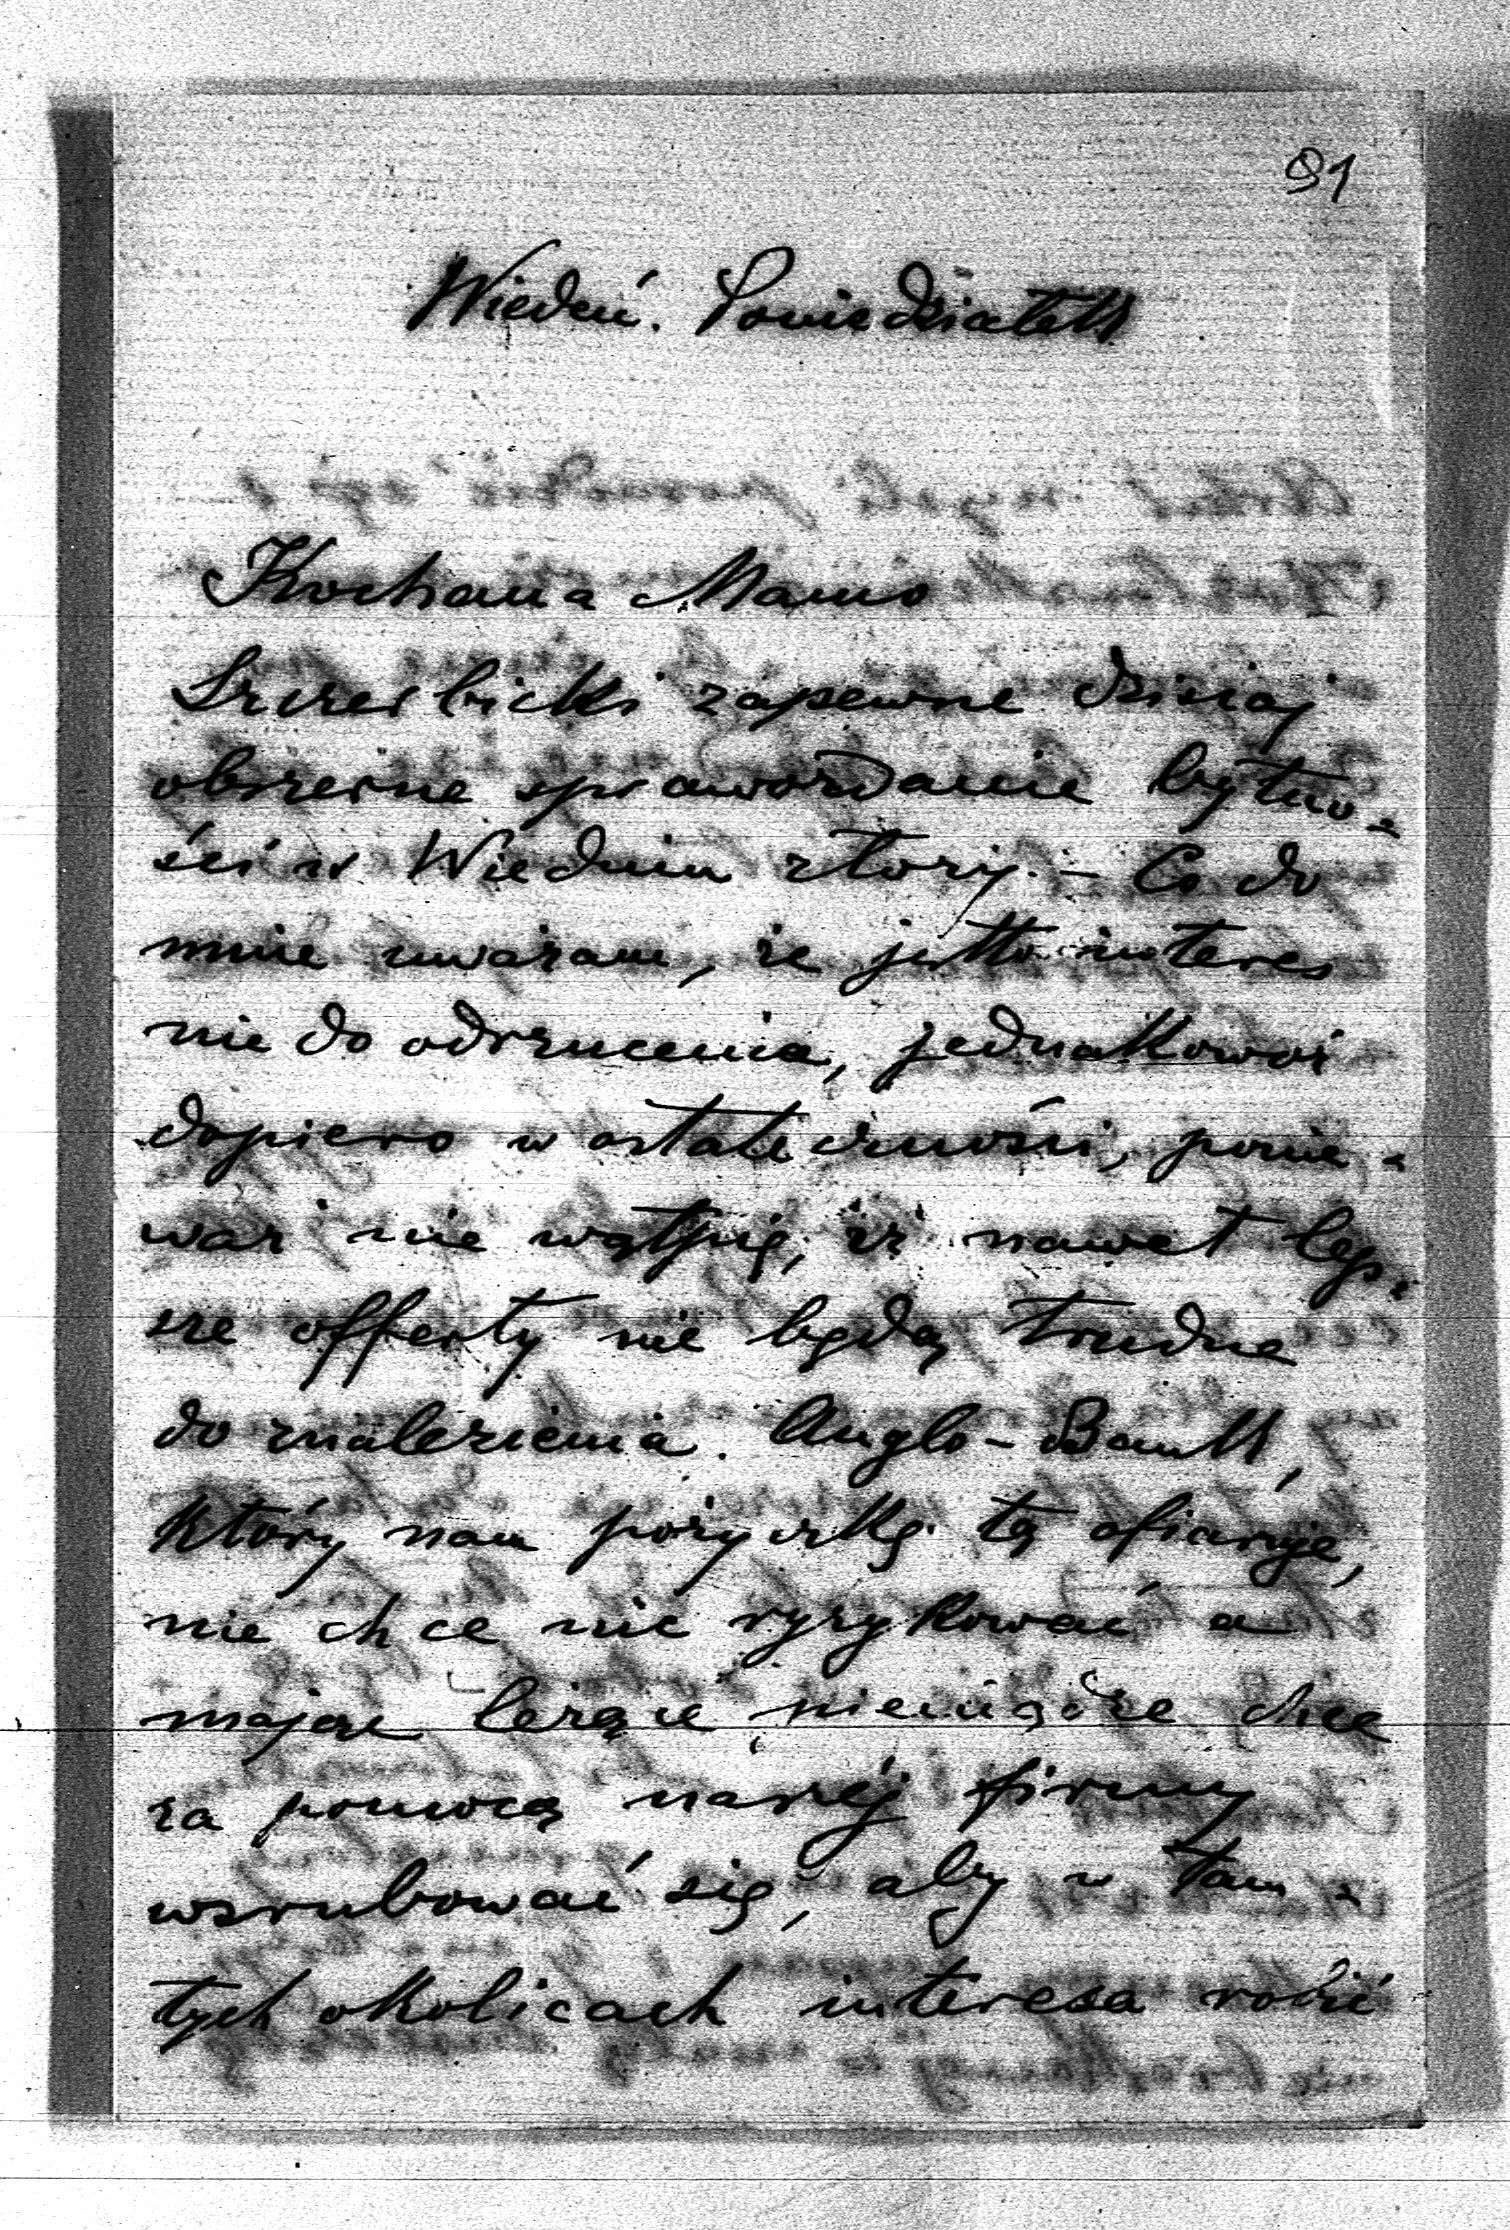 91
Wiedeń. Poniedziałek
Kochana Mamo
Szczerbicki zapewne dzisiaj
obszerne sprawozdanie bytno-
ści w Wiedniu złoży. – Co do
mnie uważam, że jestto interes
nie do odrzucenia, jednakowoż
dopiero w ostateczności, ponie-
waż nie wątpię, iż nawet lep-
sze offerty nie będą trudne
do znalezienia. Anglo-Bank,
który nam pożyczkę tę ofiaruje,
nie chce nic ryzykować a
mając leżące pieniądze chce
za pomocą naszéj firmy
wsrubować się, aby w tam-
tych okolicach interesa robić